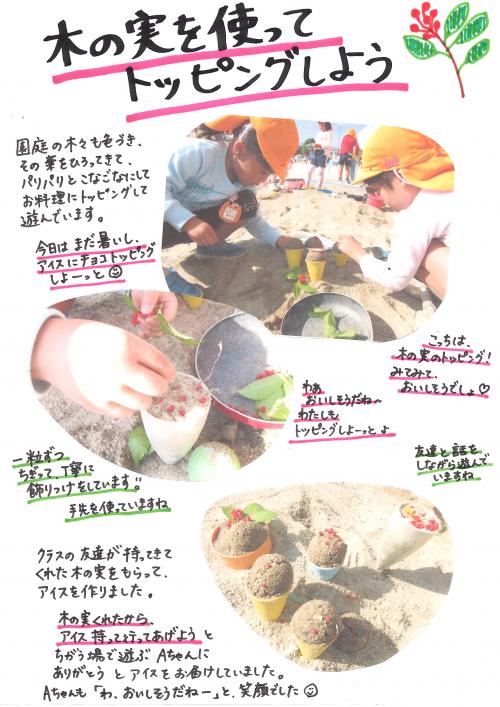 木の実を使って
トッピングしよう
園庭の木々も色づき、
その葉をひろってきて、
パリパリとこなごなにして
お料理にトッピングして
遊んでいます。
今日はまだ暑いし、
アイスにチョコトッピング
しよーっと
こっちは、
木の実のトッピング!
みてみて、
おいしそうでしょ♡
わぁ
おいしそうだね~
わたしも
トッピングしよーっとよ
一粒ずつ
ちぎって、丁寧に
飾りつけをしています!!
手先を使っていますね
友達と話を
しながら遊んで
いますね
クラスの友達が持ってきて
くれた木の実をもらって、
アイスを作りました。
木の実くれたから、
アイス持って行ってあげようと
ちがう場で遊ぶAちゃんに
ありがとうとアイスをお届けしていました。
Aちゃんも「わ、おいしそうだねー」と、笑顔でした